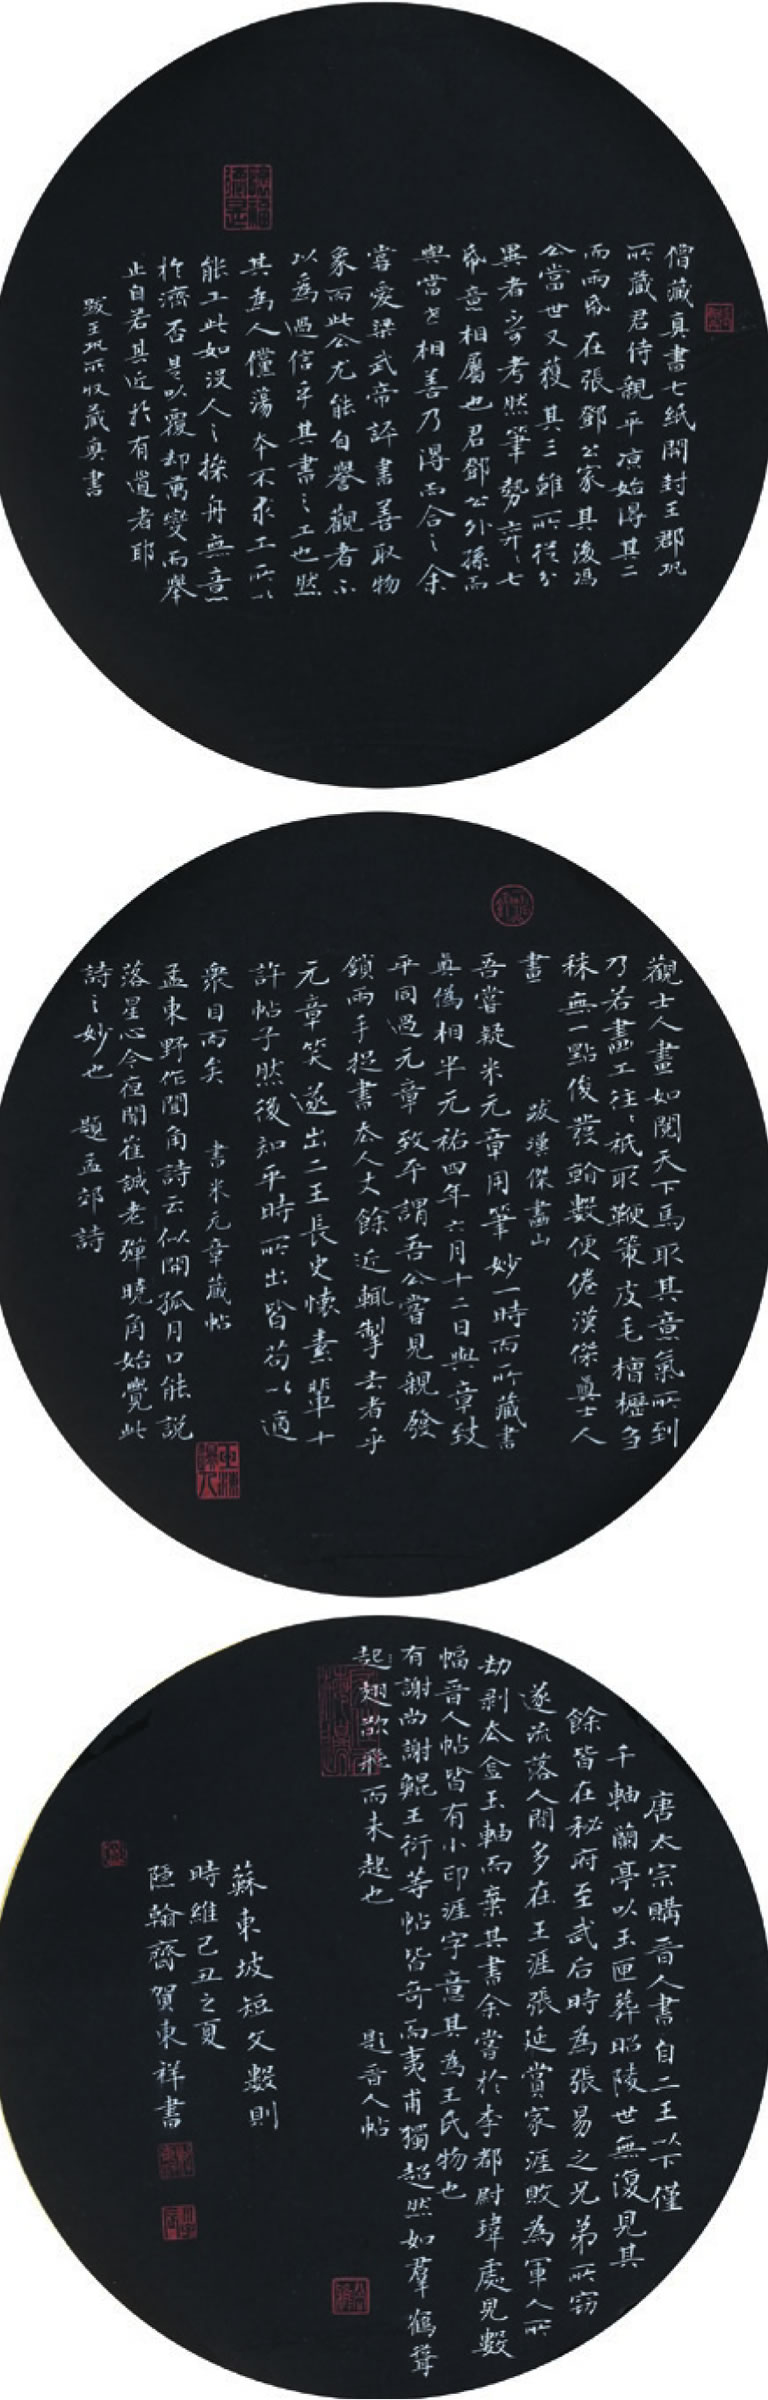 僧藏真書七紙開封王君鞏
所藏君侍親平涼始得其二
而兩紙在張鄧公家其後馮
公當世又獲其三雖所從分
異者不可考然筆勢奕〻七
紙意相屬也君鄧公外孫而
與當世相善乃得而合之余
嘗愛梁武帝評書善取物
象而此公尤能自譽觀者不
以為過信乎其書之工也然
其為人儻蕩本不求工所以
能工此如沒人之操舟無意
於濟否是以覆却萬變而舉
止自若其近於有道者耶
跋王鞏所收藏真書
觀士人畫如閱天下馬取其意氣所到
乃若畫工往〻祇取鞭策皮毛槽櫪芻
秣無一點俊發翰數便倦漢傑真士人
畫
跋漢傑畫山
吾嘗疑米元章用筆妙一時而所藏書
真偽相半元祐四年六月十二日與章致
平同過元章致平謂吾公嘗見親發
鎖兩手捉書去人丈餘近輒掣去者乎
元章笑遂出二王長史懷素輩十
許帖子然後知平時所出皆苟以適
衆目而矣
書米元章藏帖
孟東野作聞角詩云似開孤月口能說
落星心今夜聞崔誠老彈曉角始覺此
詩之妙也
題孟郊詩
唐太宗購晉人書自二王以下僅
千軸蘭亭以玉匣葬昭陵世無復見其
餘皆在秘府至武后時為張易之兄弟所竊
遂流落人間多在王涯張延賞家涯敗為軍人所
劫剥去金玉軸而棄其書余嘗於李都尉瑋處見數
幅晉人帖皆有小印涯字意其為王氏物也
有謝尚謝鯤王衍等帖皆奇而夷甫獨超然如羣鶴聳
起翅欲飛而未起也
題晉人帖
蘇東坡短文數則
時維己丑之夏
隱翰齋賀東祥書